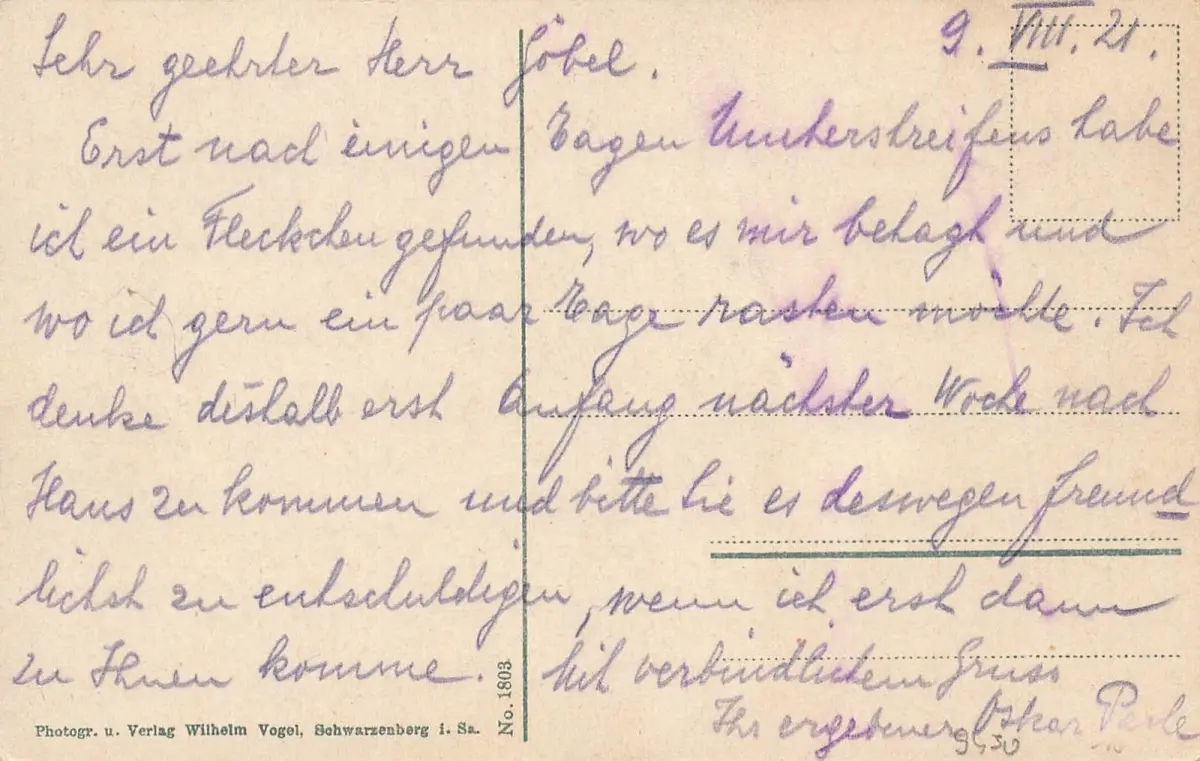 9. VIII. 21.
Sehr geehrter Herr Göbel.
Erst nach einigen Tagen Umherstreifens habe
ich ein Fleckchen gefunden, wo es mir behagt und
wo ich gern ein paar Tage rasten möchte. Ich
denke deshalb erst Anfang nächster Woche nach
Haus zu kommen und bitte Sie es deswegen freund
lichst zu entschuldigen, wenn ich erst dann
zu Ihnen komme. Mit verbindlichem Gruss
Ihr ergebener Oskar
9430
No. 1803.
Photogr. u. Verlag Wilhelm Vogel, Schwarzenberg i. Sa.